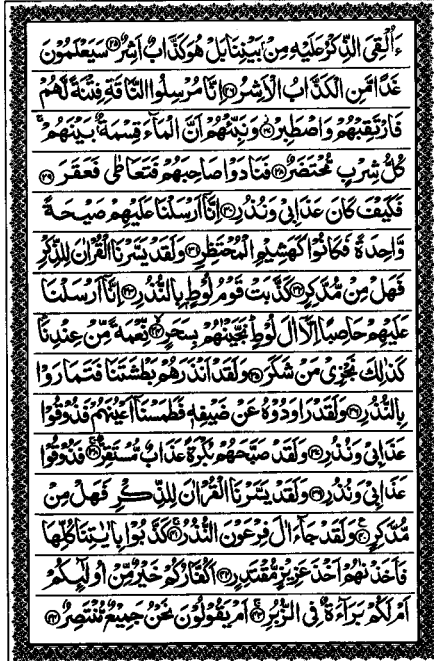 ءَاُلْقِيَ الذِّكْرُ عَلَيْهِ مِنْۢ بَيْنِنَا بَلْ هُوَ كَذَّابٌ اَشِرٌ ۝۲۵ سَيَعْلَمُوْنَ
غَدًا مَّنِ الْكَذَّابُ الْاَشِرُ ۝۲۶ اِنَّا مُرْسِلُوا النَّاقَةِ فِتْنَةً لَّهُمْ
فَارْتَقِبْهُمْ وَاصْطَبِرْ ۝۲۷ وَنَبِّئْهُمْ اَنَّ الْمَآءَ قِسْمَةٌۢ بَيْنَهُمْ ۚ
كُلُّ شِرْبٍ مُّحْتَضَرٌ ۝۲۸ فَنَادَوْا صَاحِبَهُمْ فَتَعَاطٰى فَعَقَرَ ۝۲۹
فَكَيْفَ كَانَ عَذَابِيْ وَنُذُرِ ۝۳۰ اِنَّاۤ اَرْسَلْنَا عَلَيْهِمْ صَيْحَةً
وَّاحِدَةً فَكَانُوْا كَهَشِيْمِ الْمُحْتَظِرِ ۝۳۱ وَلَقَدْ يَسَّرْنَا الْقُرْاٰنَ لِلذِّكْرِ
فَهَلْ مِنْ مُّدَّكِرٍ ۝۳۲ كَذَّبَتْ قَوْمُ لُوْطٍۭ بِالنُّذُرِ ۝۳۳ اِنَّاۤ اَرْسَلْنَا
عَلَيْهِمْ حَاصِبًا اِلَّاۤ اٰلَ لُوْطٍ ؕ نَجَّيْنٰهُمْ بِسَحَرٍ ۝۳۴ نِّعْمَةً مِّنْ عِنْدِنَا ؕ
كَذٰلِكَ نَجْزِيْ مَنْ شَكَرَ ۝۳۵ وَلَقَدْ اَنْذَرَهُمْ بَطْشَتَنَا فَتَمَارَوْا
بِالنُّذُرِ ۝۳۶ وَلَقَدْ رَاوَدُوْهُ عَنْ ضَيْفِهٖ فَطَمَسْنَاۤ اَعْيُنَهُمْ فَذُوْقُوْا
عَذَابِيْ وَنُذُرِ ۝۳۷ وَلَقَدْ صَبَّحَهُمْ بُكْرَةً عَذَابٌ مُّسْتَقِرٌّ ۝۳۸ فَذُوْقُوْا
عَذَابِيْ وَنُذُرِ ۝۳۹ وَلَقَدْ يَسَّرْنَا الْقُرْاٰنَ لِلذِّكْرِ فَهَلْ مِنْ
مُّدَّكِرٍ ۝۴۰ وَلَقَدْ جَآءَ اٰلَ فِرْعَوْنَ النُّذُرُ ۝۴۱ كَذَّبُوْا بِاٰيٰتِنَا كُلِّهَا
فَاَخَذْنٰهُمْ اَخْذَ عَزِيْزٍ مُّقْتَدِرٍ ۝۴۲ اَكُفَّارُكُمْ خَيْرٌ مِّنْ اُولٰٓئِكُمْ
اَمْ لَكُمْ بَرَآءَةٌ فِي الزُّبُرِ ۝۴۳ اَمْ يَقُوْلُوْنَ نَحْنُ جَمِيْعٌ مُّنْتَصِرٌ ۝۴۴